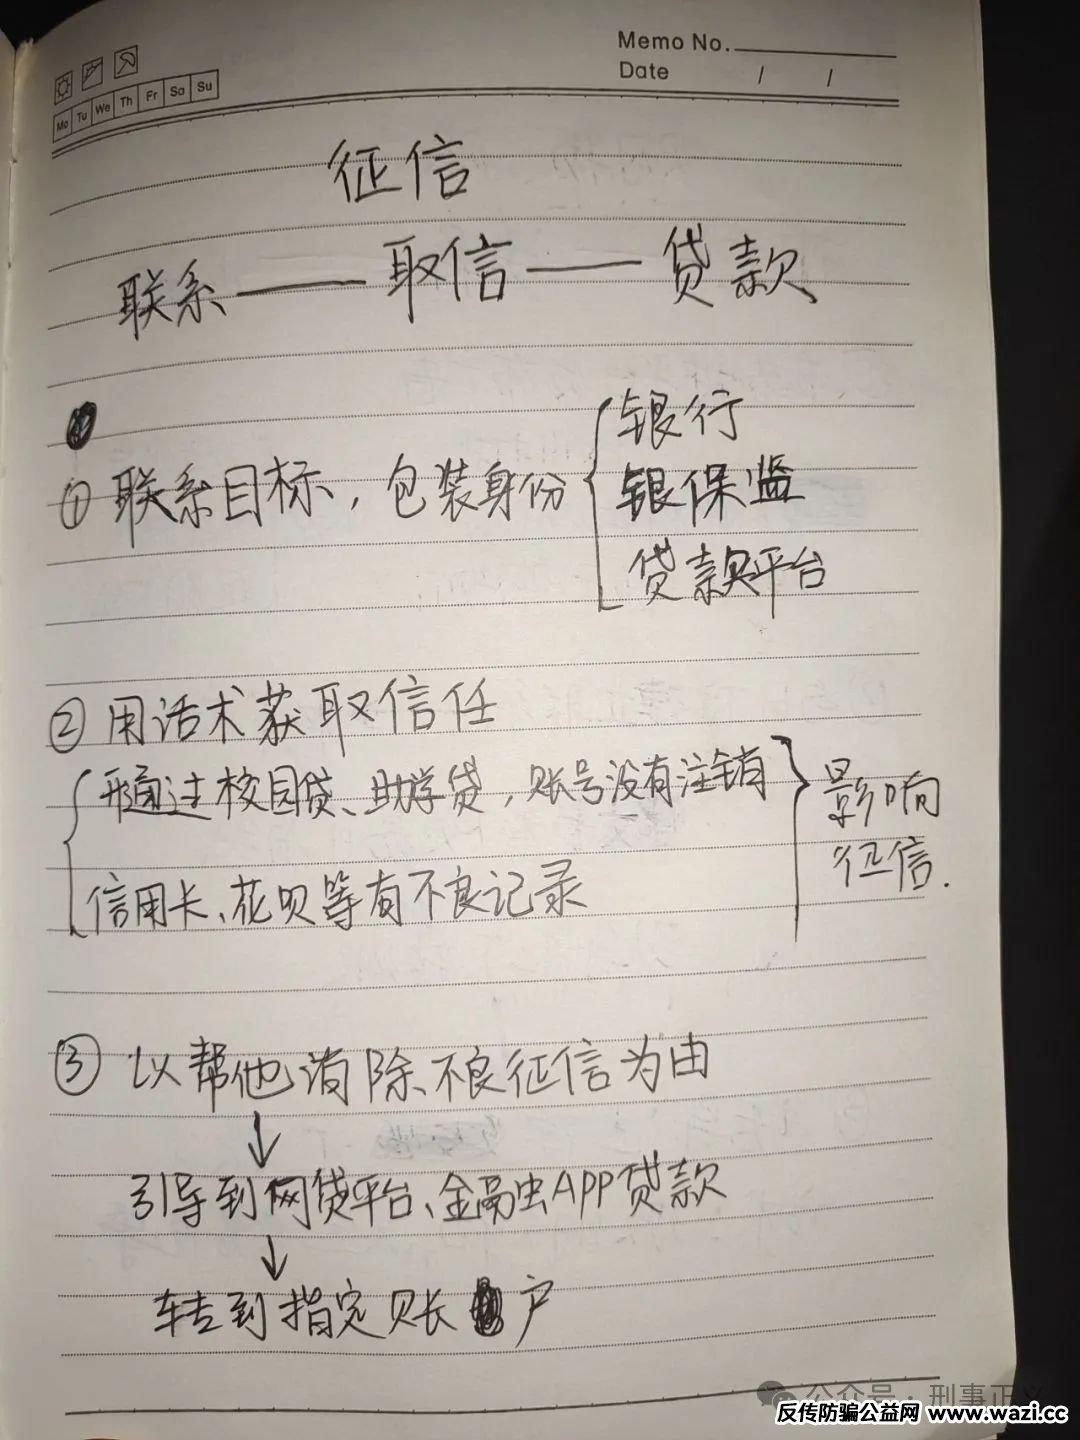 Memo No.
Date / /
Mo Tu We Th Fr Sa Su
征信
联系——取信——贷款
①联系目标，包装身份
银行
银保监
贷款平台
②用话术获取信任
通过校园贷、助学贷，账号没有注销
信用卡、花呗等有不良记录
影响
征信.
③以帮他消除不良征信为由
↓
引导到网贷平台、金融APP贷款
↓
转到指定账户
公众号·刑事正义
反传防骗公益网 www.wazi.cc